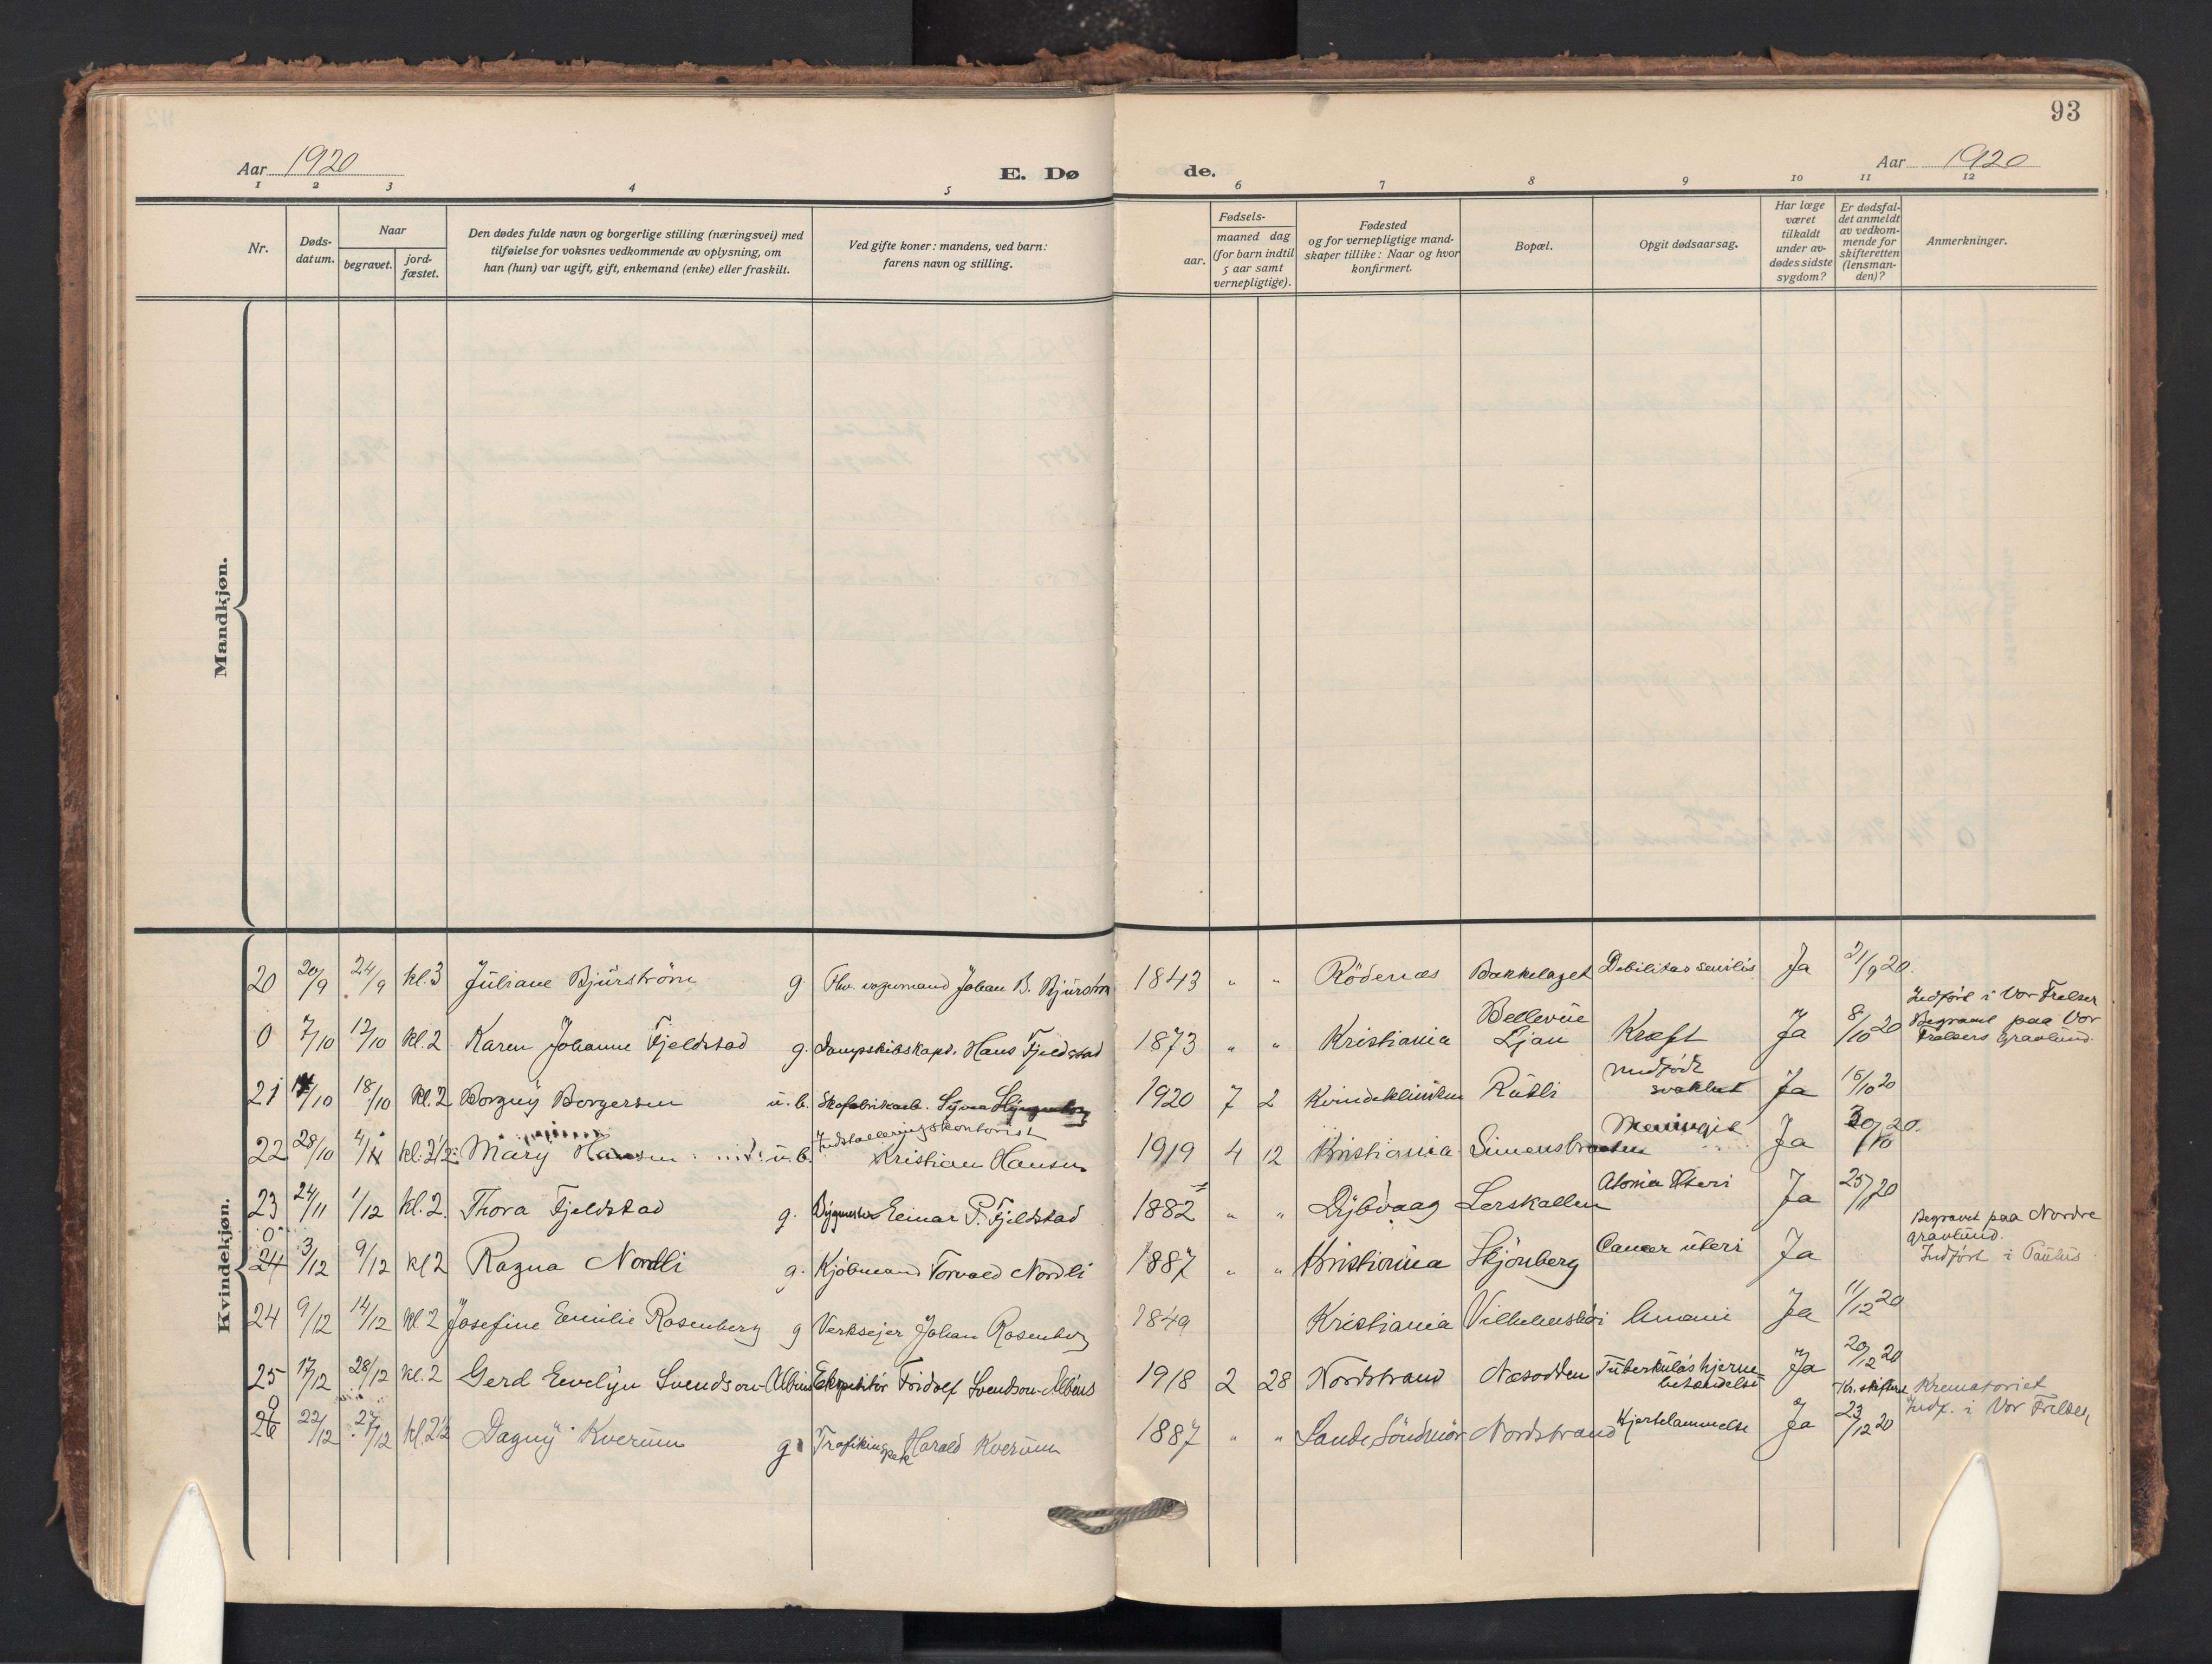 93
Aar 1920
E. Dø
de.
Aar 1920
1 2 3 4 5 6 7 8 9 10 11 12
Nr.
Døds-
datum.
Naar
begravet.
jord-
fæstet.
Den dødes fulde navn og borgerlige stilling (næringsvei) med
tilføielse for voksnes vedkommende av oplysning, om
han (hun) var ugift, gift, enkemand (enke) eller fraskilt.
Ved gifte koner: mandens, ved barn:
farens navn og stilling.
Fødsels-
aar.
maaned dag
(for barn indtil
5 aar samt
vernepligtige).
Fødested
og for vernepligtige mand-
skaper tillike: Naar og hvor
konfirmert.
Bopæl.
Opgit dødsaarsag.
Har læge
været
tilkaldt
under av-
dødes sidste
sygdom?
Er dødsfal-
det anmeldt
av vedkom-
mende for
skifteretten
(lensman-
den)?
Anmerkninger.
Mandkjøn.
Kvindekjøn.
20 20/9 24/9 kl. 3 Juliane Bjurstrøm g. Fhv. vognmand Johan B. Bjurstrøm 1843 " " Rödenæs Bækkelaget Debilitas senilis Ja 21/9 20.
Indført i Vor Frelser
0 7/10 12/10 kl. 2 Karen Johanne Fjeldstad g. Dampskibskapt. Hans Fjeldstad 1873 " " Kristiania Bellevue Ljan Kræft Ja 8/10 20 Begravet paa Vor
Frelsers Gravlund.
21 14/10 18/10 kl. 2 Borgny Borgersen u. b. Skofabrikarb. 1920 7 2 Kvindekliniken Rütli medfödt svakhet Ja 15/10 20
22 28/10 4/11 kl. 2 1/2 Mary Hansen u. b. Kristian Hansen 1919 4 12 Kristiania Simensbraaten Meningit Ja 30/10 20.
23 24/11 1/12 kl. 2. Thora Fjeldstad g. Bygmester Einar P. Fjeldstad 1882 " " Dybvaag Lerskallen Atonia Uteri Ja 25/11 20
0
24 3/12 9/12 kl 2 Ragna Nordli g. Kjöbmand Torvald Nordli 1887 " " Kristiania Skjönberg Cancer uteri Ja
Begravet paa Nordre
gravlund.
Indført i Paulus
24 9/12 14/12 kl. 2 Josefine Emilie Rosenberg g Verkseier Johan Rosenberg 1849 Kristiania Ja 11/12 20
25 17/12 28/12 kl. 2 Gerd Evelyn Svendson-Albins Ekspeditör Fridolf Svendson-Albins 1918 2 28 Nordstrand Næsodden Tuberkuløs hjerne betændelse Ja 20/12 20
Kr. skifteret Krematoriet
0
26 22/12 27/12 kl. 2 1/2 Dagny Kverum g. Trafikinspek Harald Kverum 1887 " " Sande, Söndmör Nordstrand Hjertelammelse Ja 23/12 20 Indf. i Vor Frelser,